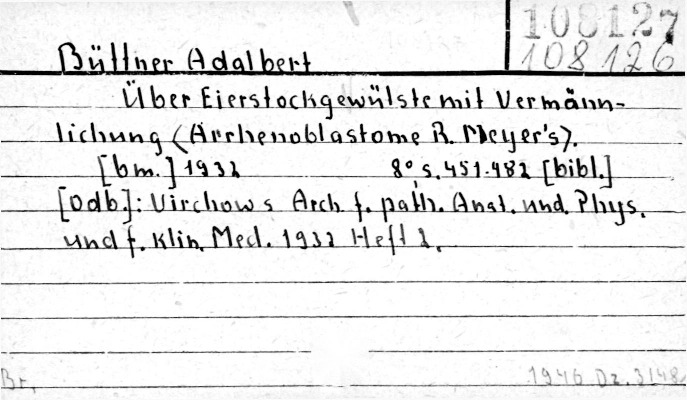 108127
108126
Büttner Adalbert
Über Eierstockgewülste mit Vermänn-
lichung (Arrhenoblastome R. Meyer's).
[bm.] 1932 8° s. 451-482 [bibl.]
[Odb.]: Virchows Arch f. path. Anat. und. Phys.
und f. Klin. Med. 1932 Heft 2.
Br. 1946 Dz. 3148